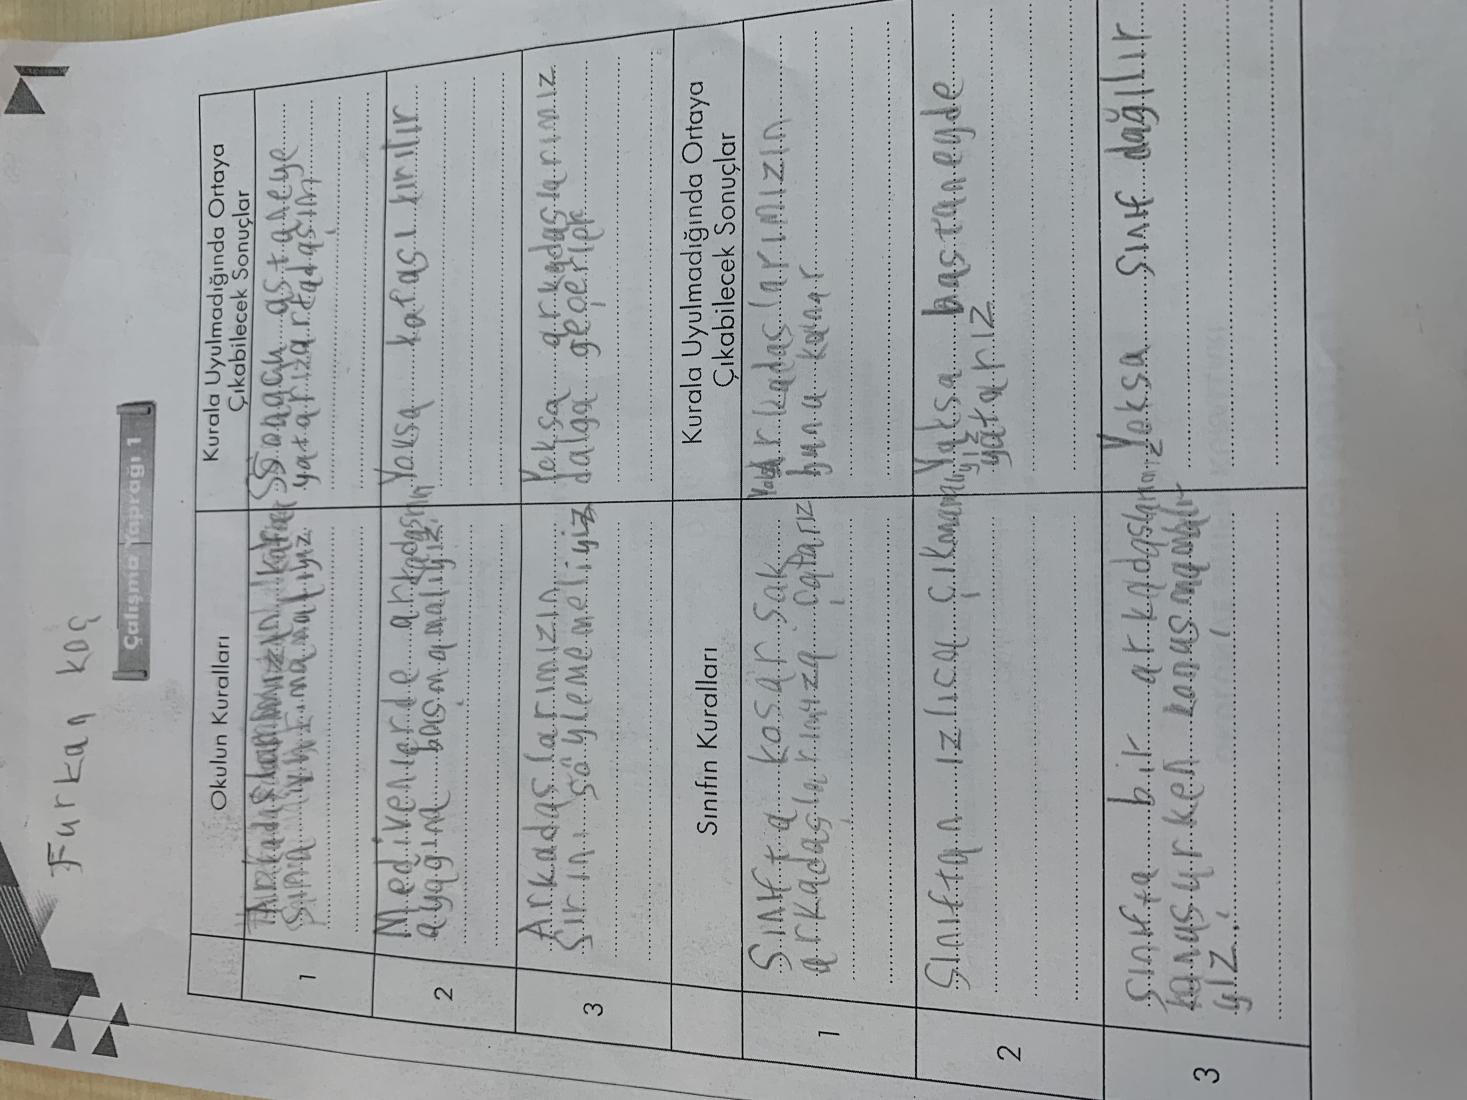 Furkan koç
Çalışma Yaprağı 1
Okulun Kuralları
Kurala Uyulmadığında Ortaya
Çıkabilecek Sonuçlar
1
astaneye
2
Medivenlerde arkadaşının
ayağına basmamalıyız.
Yoksa kafası kırılır
3
Arkadaşlarımızın
sırını söylememeliyiz
Yoksa arkadaşlarımız
dalga geçerler
Sınıfın Kuralları
Kurala Uyulmadığında Ortaya
Çıkabilecek Sonuçlar
1
Sınıfta koşarsak
arkadaşlarımıza çatarız
arkadaşlarımızın
buna kanar
2
Sınıftan ızlıca çıkmamalı
yız
Yoksa hastaneyde
yatarız
3
Sınıfta bir arkadaşımız
konuşurken konuşmamalı
yız.
Yoksa sınıf dağılır